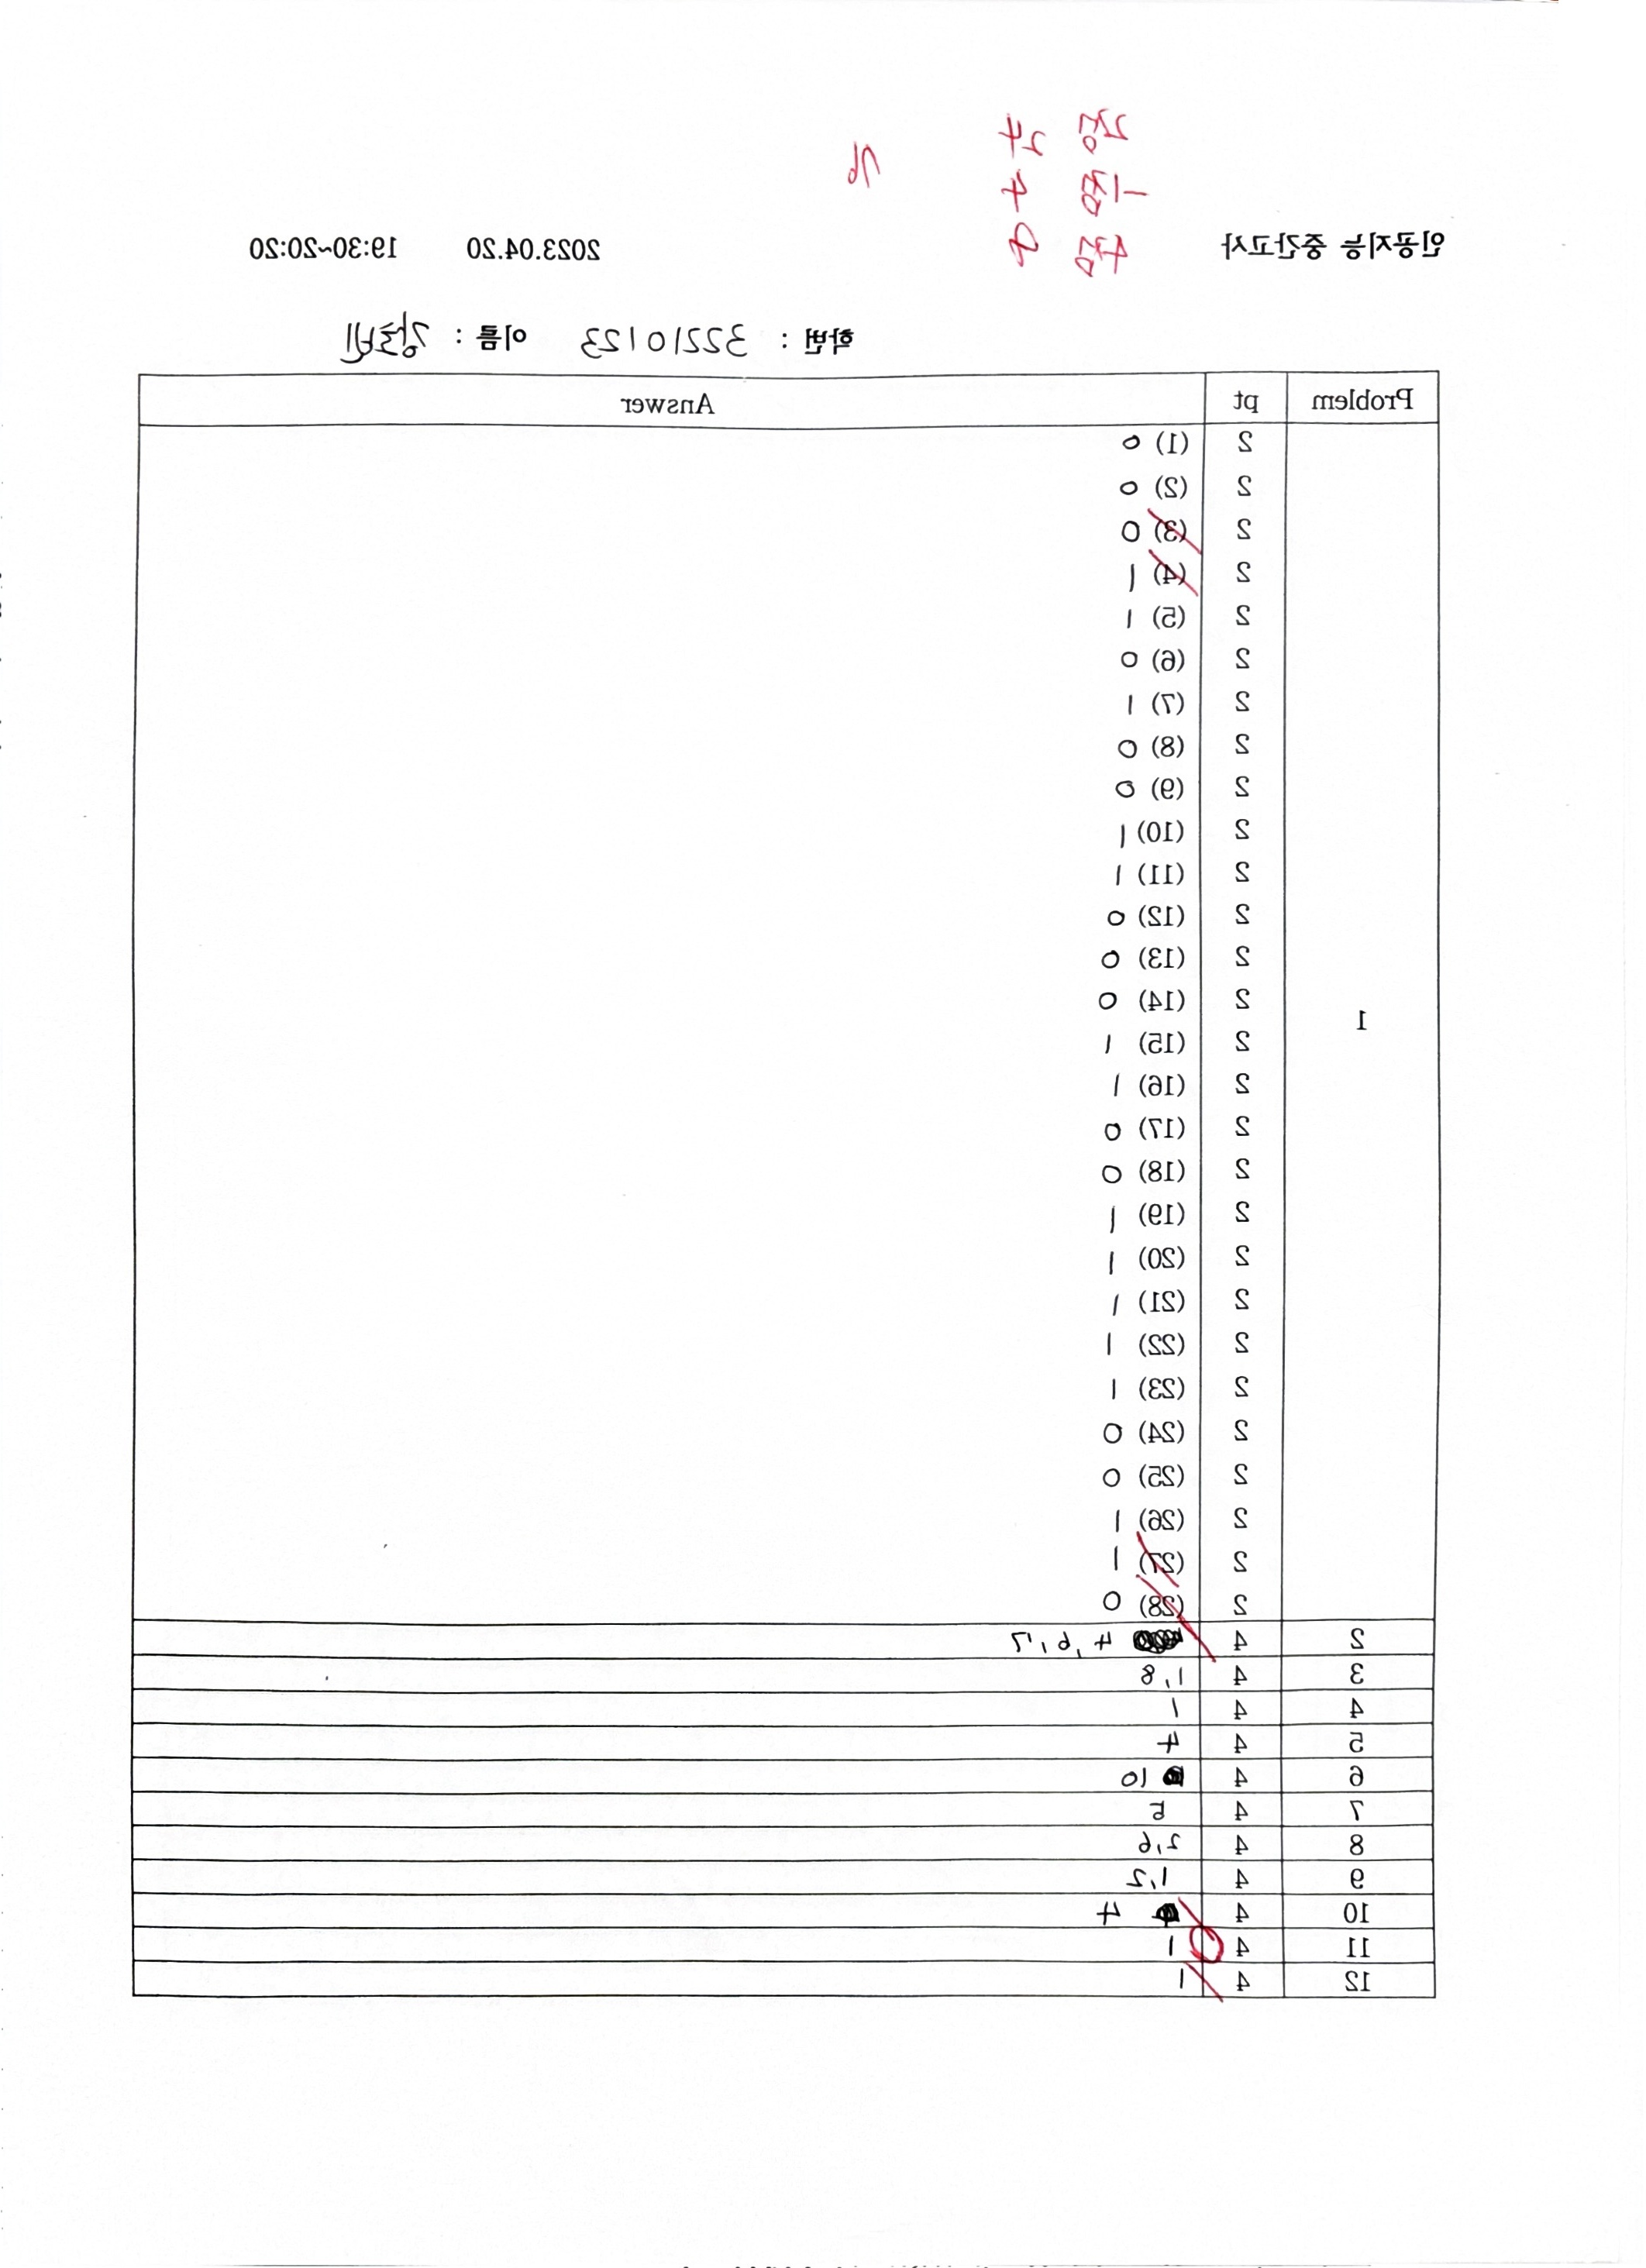 인공지능 중간고사 2023.04.20 19:30~20:20
학번 : 32210123 이름 :
Problem pt Answer
1
2 (1) 0
2 (2) 0
2 (3) 0
2 (4) 1
2 (5) 1
2 (6) 0
2 (7) 1
2 (8) 0
2 (9) 0
2 (10) 1
2 (11) 1
2 (12) 0
2 (13) 0
2 (14) 0
2 (15) 1
2 (16) 1
2 (17) 0
2 (18) 0
2 (19) 1
2 (20) 1
2 (21) 1
2 (22) 1
2 (23) 1
2 (24) 0
2 (25) 0
2 (26) 1
2 (27) 1
2 (28) 0
2 4 4,6,7
3 4 1,8
4 4 1
5 4 4
6 4 10
7 4 5
8 4 2,6
9 4 1,2
10 4 4
11 4 1
12 4 1